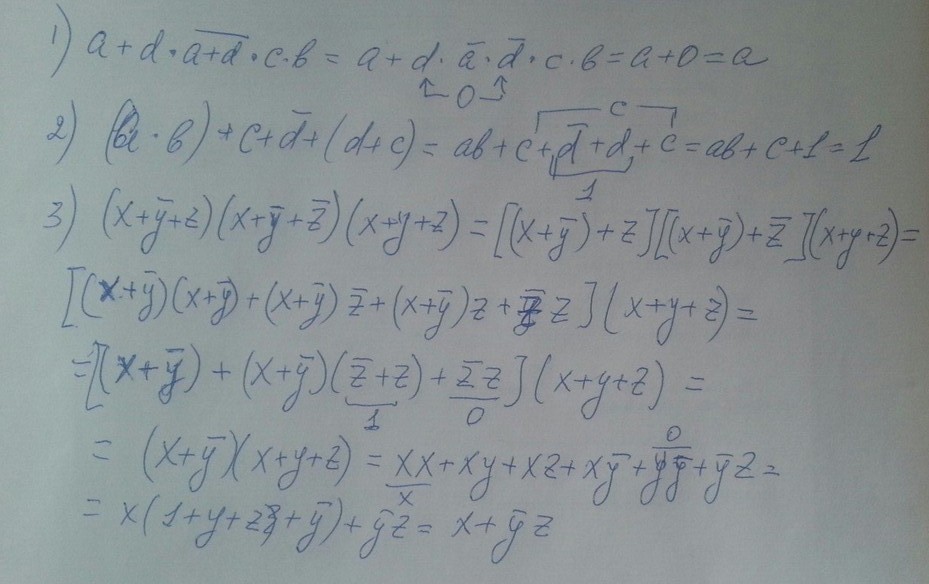 1) a + d · \overline{a+d} · c · b = a + d · ā · d̄ · c · b = a + 0 = a
0
c
2) (a · b) + c + d̄ + (d + c) = ab + c + d̄ + d + c = ab + c + 1 = 1
1
3) (x + ȳ + z)(x + ȳ + z̄)(x + y + z) = [(x + ȳ) + z][(x + ȳ) + z̄](x + y + z) =
[(x + ȳ)(x + ȳ) + (x + ȳ) z̄ + (x + ȳ) z + z̄ z](x + y + z) =
= [(x + ȳ) + (x + ȳ)(z̄ + z) + z̄ z](x + y + z) =
1 0
0
= (x + ȳ)(x + y + z) = xx + xy + xz + xȳ + yȳ + ȳz =
x
= x(1 + y + z + ȳ) + ȳz = x + ȳz